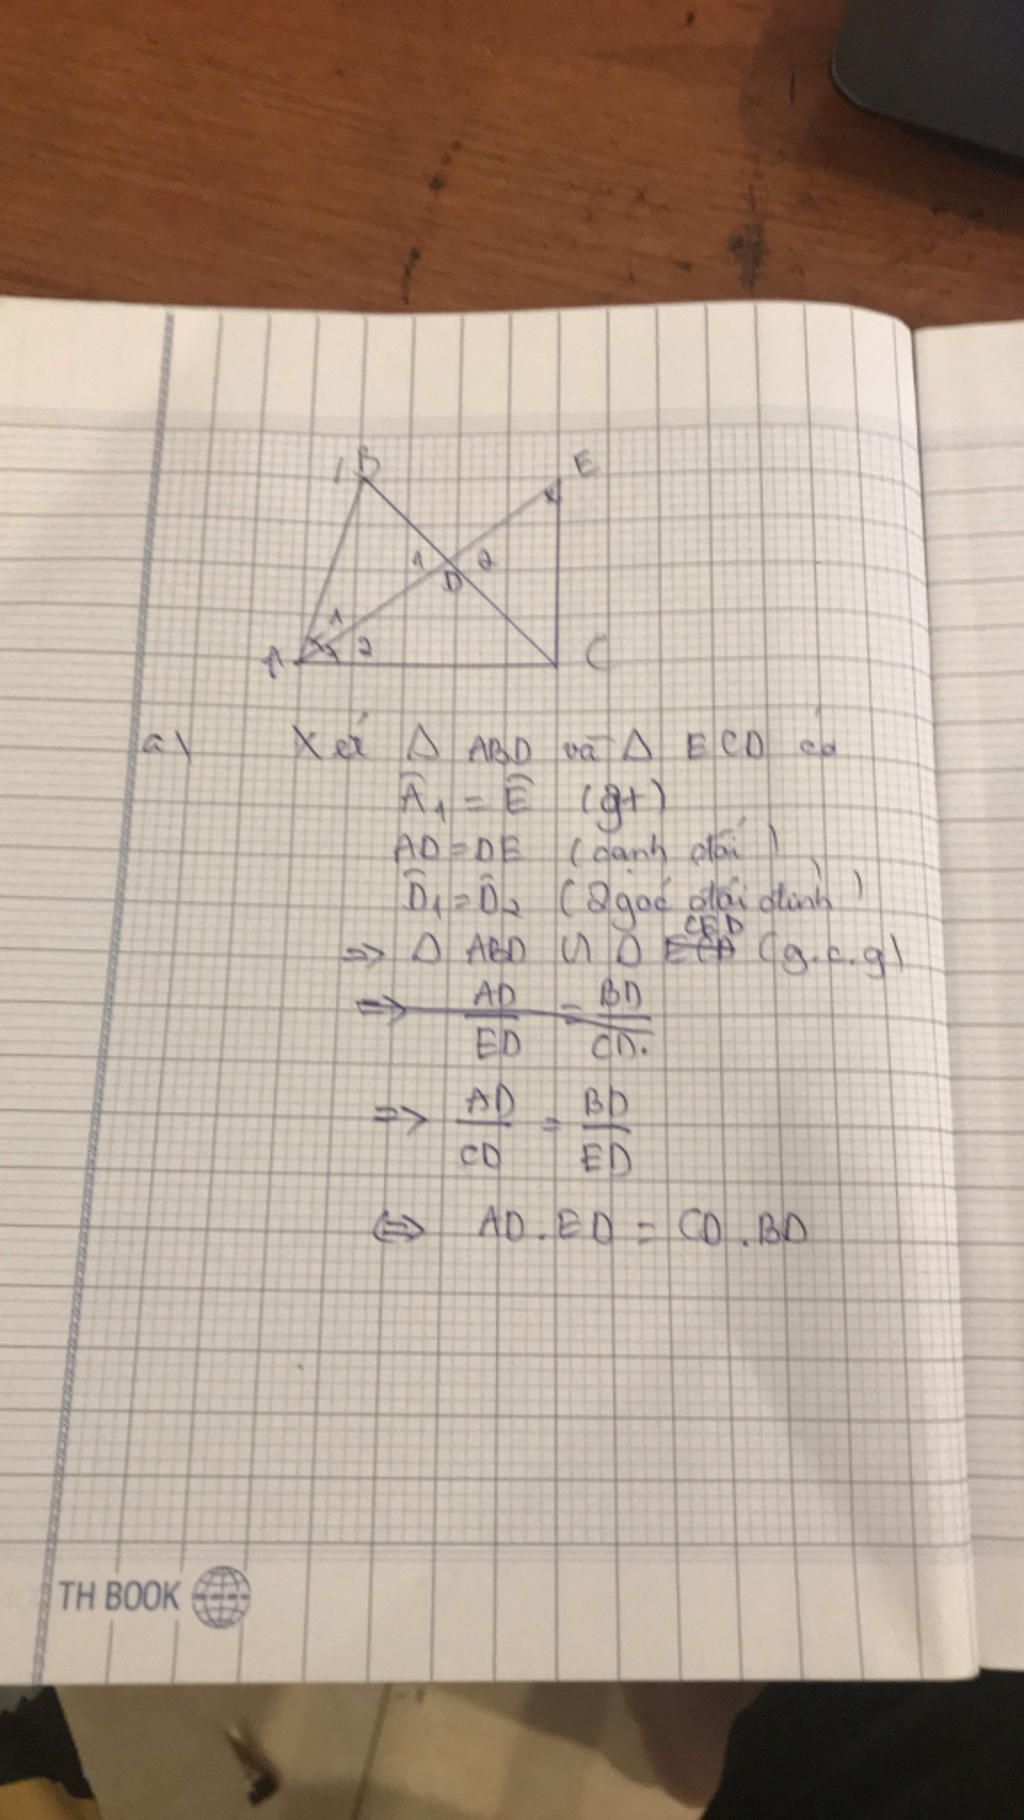 B
E
1
D
2
1
A
2
C
a) Xét Δ ABD và Δ ECD có
Â₁ = Ê (gt)
AD = DE (cạnh đối)
D̂₁ = D̂₂ (2 góc đối đỉnh)
=> Δ ABD ∽ Δ CED (g.c.g)
=> AD/ED = BD/CD.
=> AD/CD = BD/ED
<=> AD.ED = CD.BD
TH BOOK